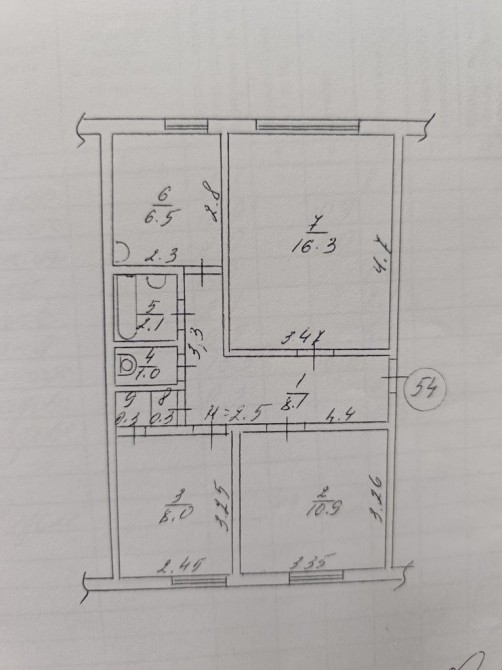 6
6.5
2.8
2.3
7
16.3
4.7
3.47
5
2.1
3,3
4
1.0
1
8.1
54
9
0.3
8
0.3
H=2.5
4.4
3
8.0
3.25
2.45
2
10.9
3.26
3.35